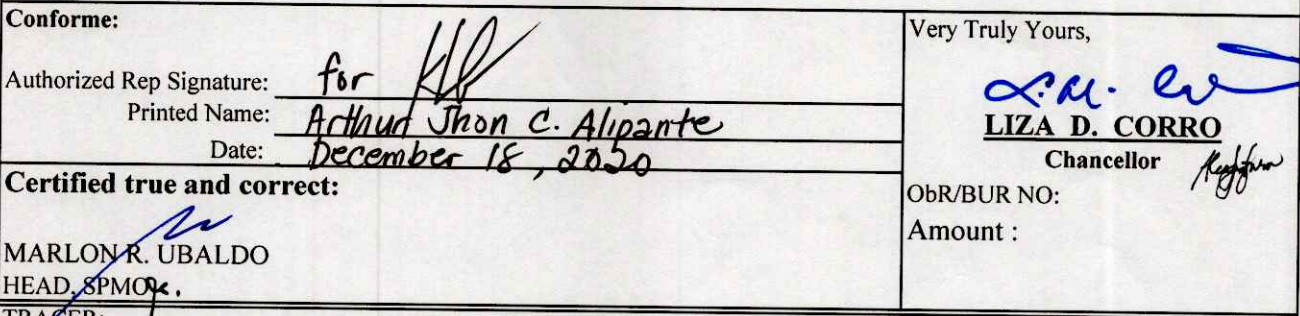 Conforme:
Authorized Rep Signature: for
Printed Name: Arthur Jhon C. Alipante
Date: December 18, 2020
Certified true and correct:
MARLON R. UBALDO
HEAD, SPMO
TRACER:
Very Truly Yours,
LIZA D. CORRO
Chancellor
ObR/BUR NO:
Amount :